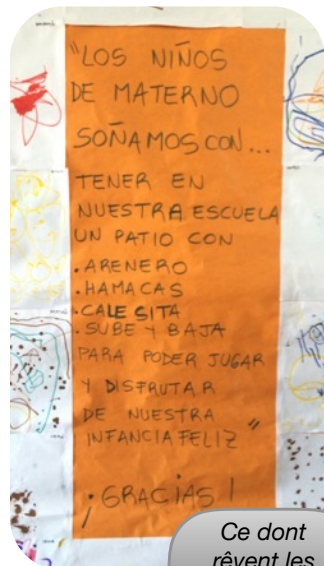 "LOS NIÑOS
DE MATERNO
SOÑAMOS CON...
TENER EN
NUESTRA ESCUELA
UN PATIO CON
.ARENERO
.HAMACAS
.CALESITA
.SUBE Y BAJA
PARA PODER JUGAR
Y DISFRUTAR
DE NUESTRA
INFANCIA FELIZ"
¡GRACIAS!
Ce dont
rêvent les